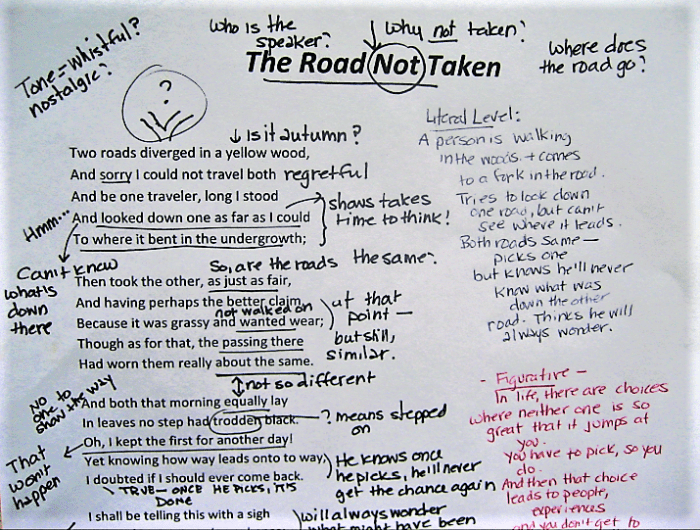 Tone = Whistful?
nostalgic?
who is the
speaker?
Why not taken?
where does
the road go?
The Road Not Taken
?
↓ Is it autumn?
Two roads diverged in a yellow wood,
And sorry I could not travel both regretful
And be one traveler, long I stood
And looked down one as far as I could
To where it bent in the undergrowth;
shows takes
time to think!
Hmm...
Can't know
what's
down
there
So, are the roads the same?
Then took the other, as just as fair,
And having perhaps the better claim,
not walked on
Because it was grassy and wanted wear;
Though as for that, the passing there
Had worn them really about the same.
at that
point —
but still,
similar.
not so different
No
one to
show the way
And both that morning equally lay
In leaves no step had trodden black.
? means stepped
on
Oh, I kept the first for another day!
That
won't
happen
Yet knowing how way leads onto way,
I doubted if I should ever come back.
He knows once
he picks, he'll never
get the chance again
TRUE - ONCE HE PICKS, IT'S
DONE
I shall be telling this with a sigh
will always wonder
what might have been
Literal Level:
A person is walking
in the woods + comes
to a fork in the road.
Tries to look down
one road, but can't
see where it leads.
Both roads same —
picks one
but knows he'll never
know what was
down the other
road. Thinks he will
always wonder.
- Figurative -
In life, there are choices
where neither one is so
great that it jumps at
you.
You have to pick, so you
do.
And then that choice
leads to people,
experiences
and you don't get to